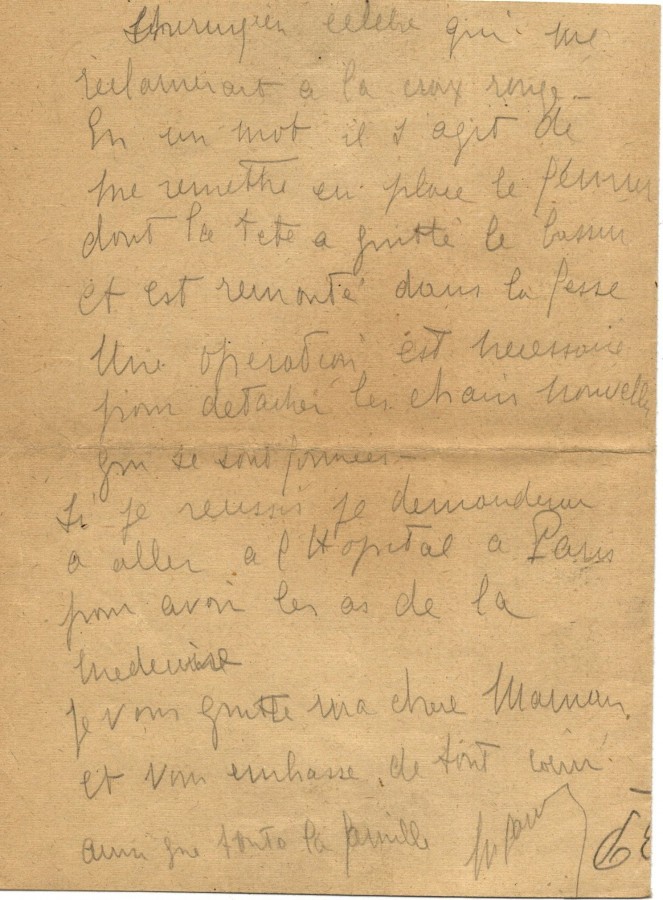 chirurgien celebre qui me
reclamerait a la croix rouge –
En un mot il s'agit de
me remettre en place le fémur
dont la tete a quitté le bassin
et est remonté dans la fesse
Une operation est necessaire
pour detacher les chairs nouvelles
qui se sont formées –
Si je reussis je demanderai
a aller a l'Hopital a Paris
pour avoir les as de la
medecine
je vous quitte ma chere Maman,
et vous embrasse de tout coeur
ainsi que toute la famille